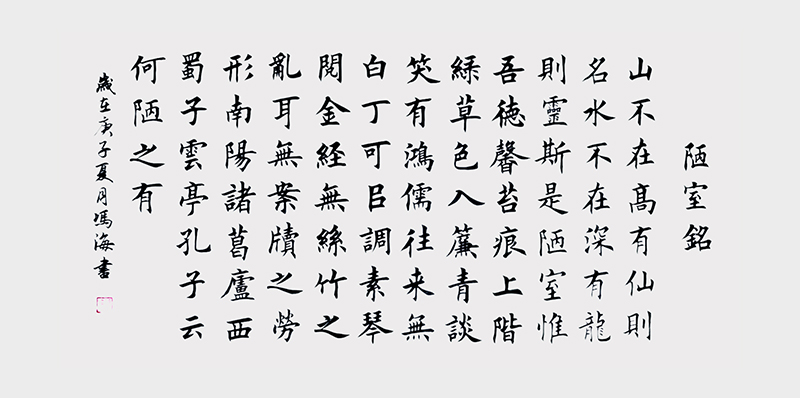 陋室銘
山不在髙有仙則
名水不在深有龍
則靈斯是陋室惟
吾徳馨苔痕上階
緑草色入簾青談
笑有鴻儒往来無
白丁可㠯調素琴
閱金経無絲竹之
亂耳無案牘之勞
形南陽諸葛廬西
蜀子雲亭孔子云
何陋之有
歲在庚子夏月馮海書